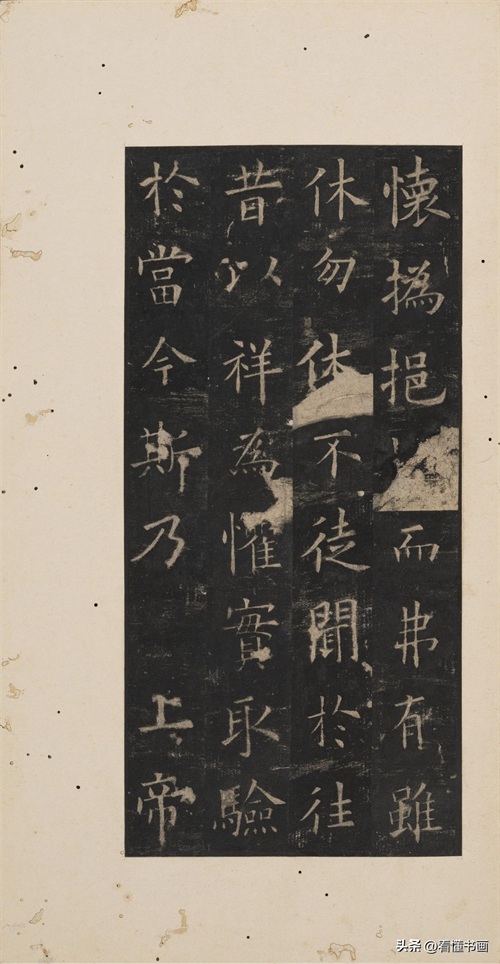 懷撝挹而弗有雖
休勿休不徒聞於往
昔以祥為懼實取驗
於當今斯乃 上帝
头条 @看懂书画